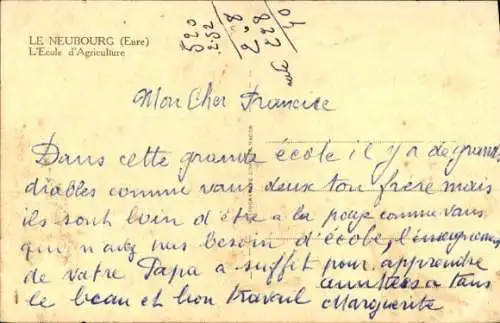 LE NEUBOURG (Eure)
L'Ecole d'Agriculture
520
2.52
2.8
822
40
Mon Cher Francise
Dans cette grande école il y a de grands
diables comme vous deux ton frère mais
ils sont loin d'être a la page comme vous
qui n'avez pas besoin d'école, l'enseignement
de votre Papa a suffit pour apprendre
le beau et bon travail a tous
Marguerite